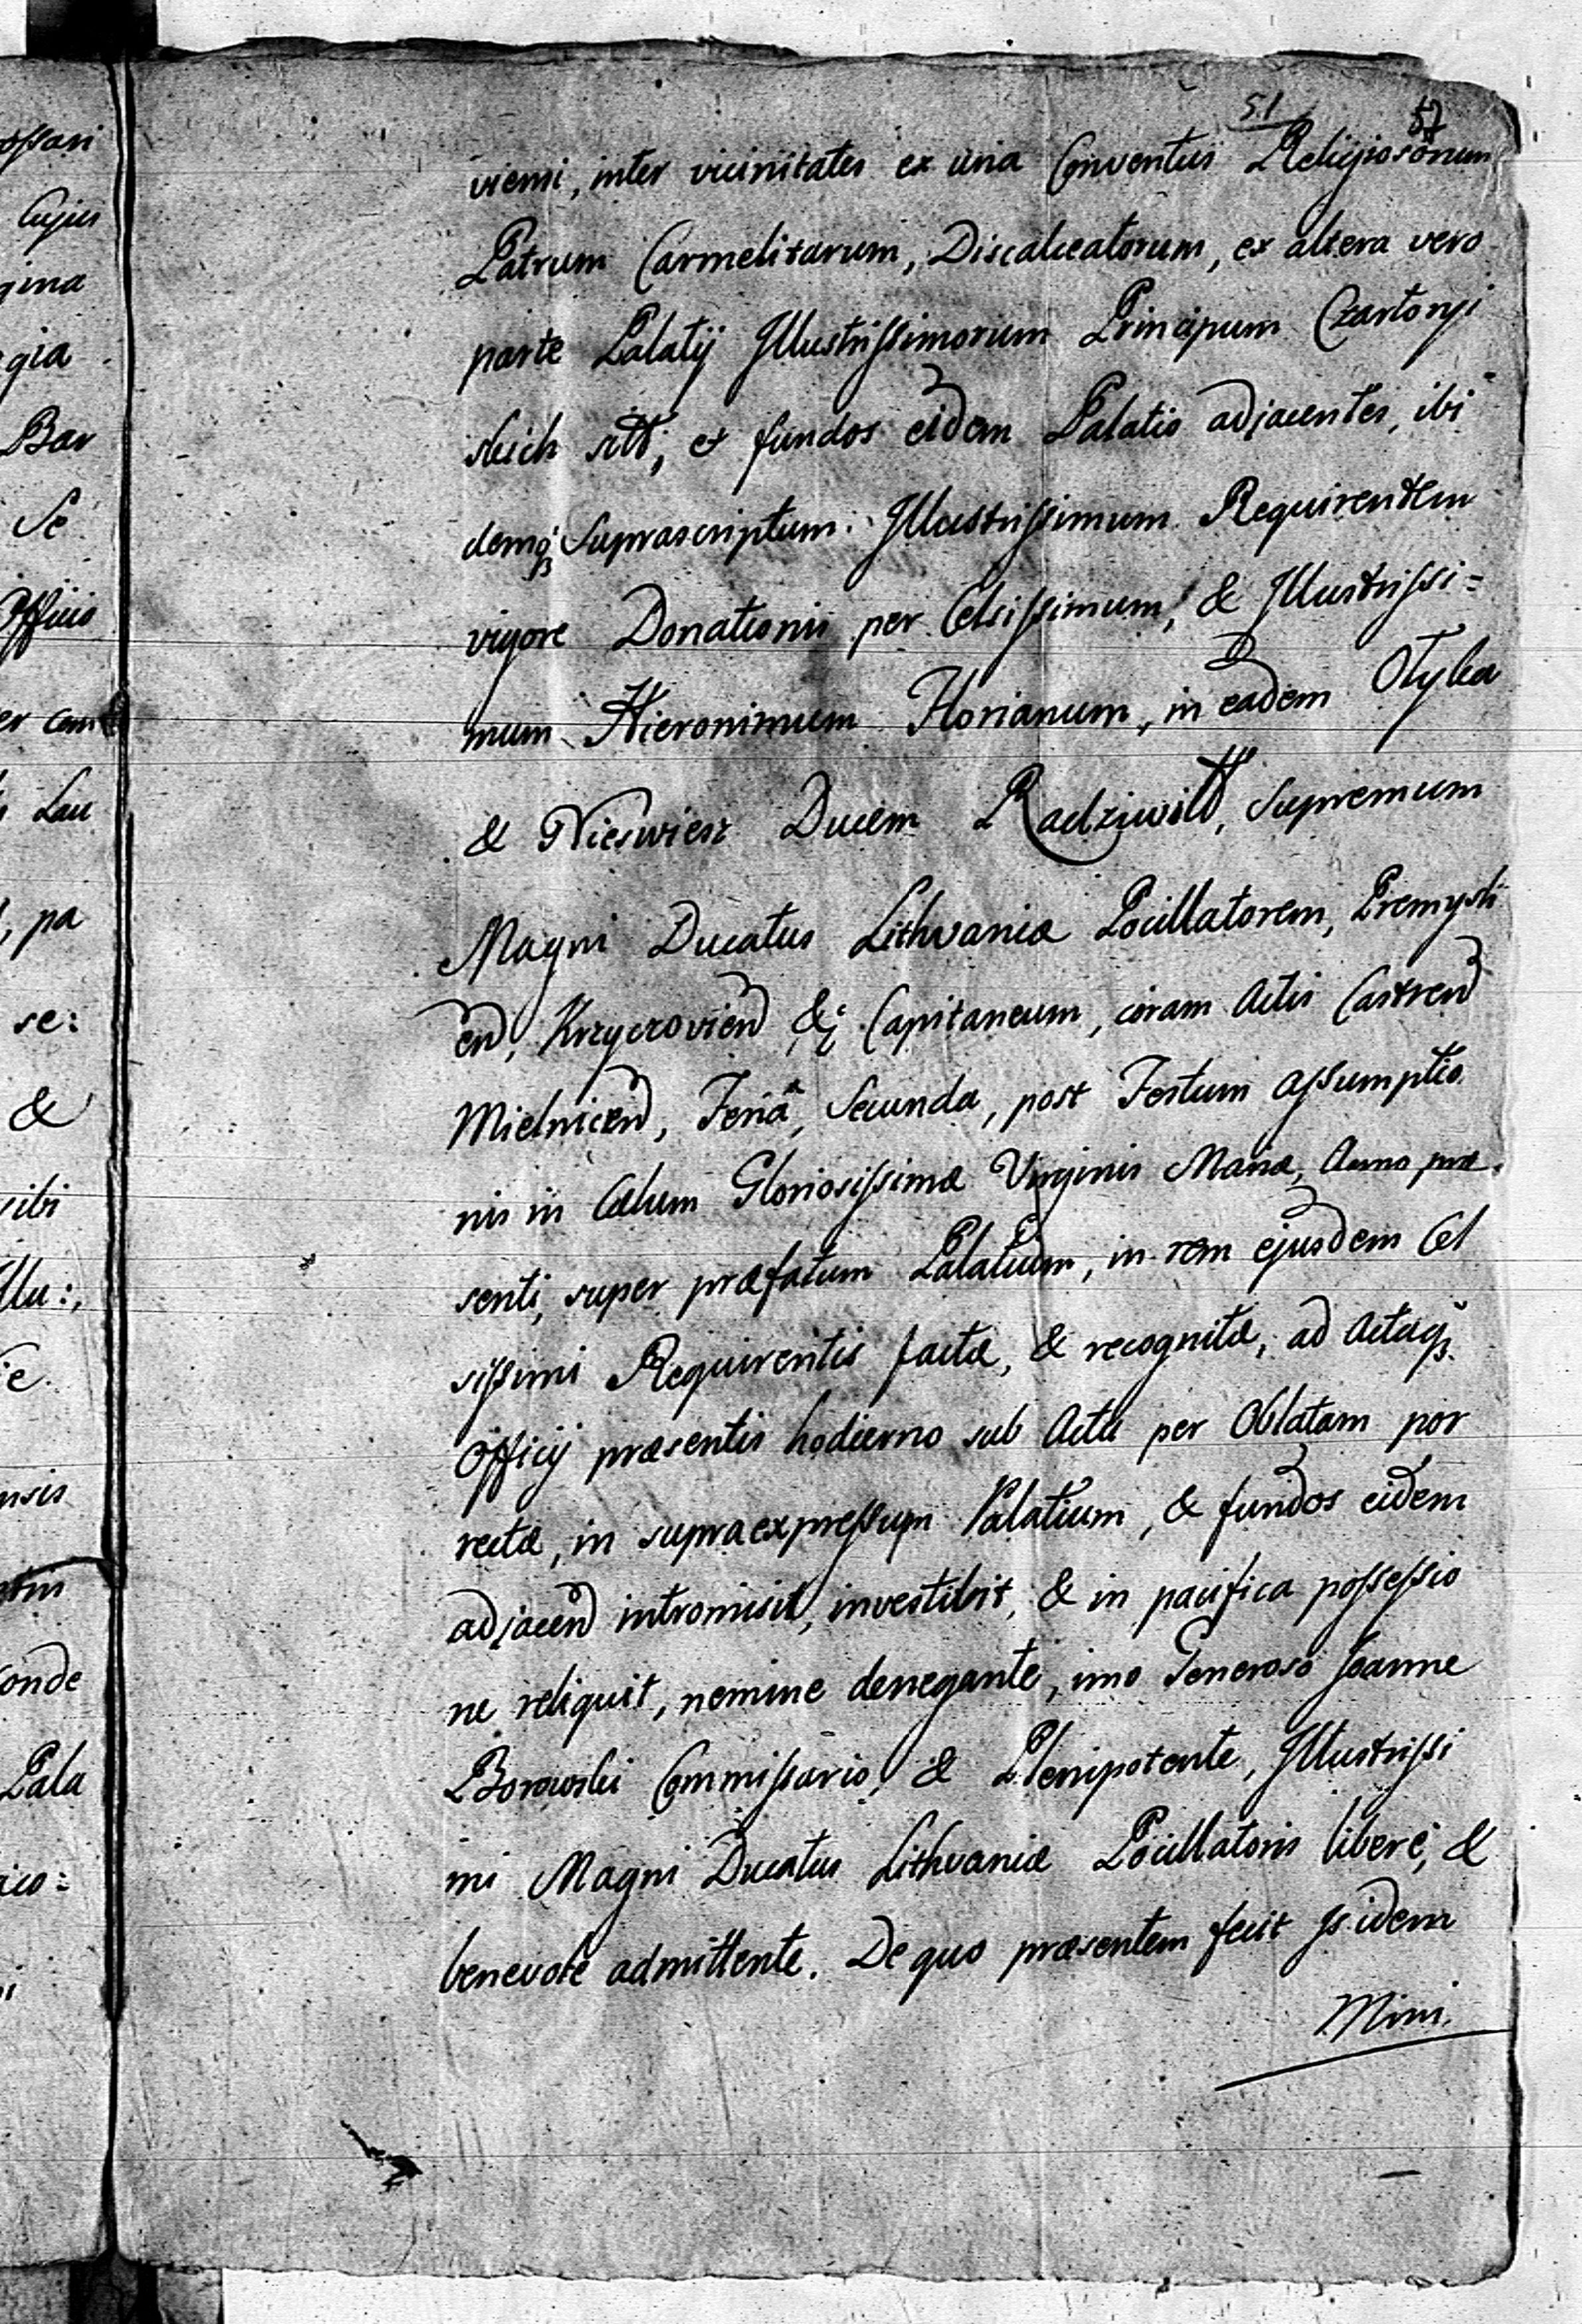 51 52
viensi, inter vicinitates ex una Conventus Religiosorum
Patrum Carmelitarum, Discalceatorum, ex altera vero
parte Palatij Illustrissimorum Principum Czartoryi
skich sitt, et fundos eidem Palatio adjacentes, ibi
demq₃ Suprascriptum Illustrissimum Requirentem
vigore Donationis per Celsissimum, & Illustrissi=
mum Hieronimum Florianum, in eadem Olyka
& Nieswiesz Ducem Radziwiłł, Supremum
Magni Ducatus Lithvaniæ Pocillatorem, Premysli
en̄d, Krzyczovien̄d &c. Capitaneum, coram Actis Castren̄d
Mielnicen̄d, Feriâ, Secunda, post Festum Assumptio
nis in Cælum Gloriosissimæ Virginis Mariæ, Anno præ
senti, super præfatum Palatium, in rem ejusdem Cel
sissimi Requirentis factæ, & recognitæ, ad Actaq₃
Officij præsentis hodierno sub Actu per Oblatam por
rectæ, in supraexpressum Palatium, & fundos eidem
adjacen̄d intromisit, investibit, & in pacifica possessio
ne reliquit, nemine denegante, imo Generoso Joanne
Borowski Commissario, & Plenipotente, Illustrissi
mi Magni Ducatus Lithvaniæ Pocillatoris libere, &
benevole admittente. De quo præsentem fecit Isidem
Mini.
ossari
Cujus
gina
gia
Bar
Se
Officio
er cem
Lau
, pa
se:
&
sibi
llu:,
nsis
onde
Pala